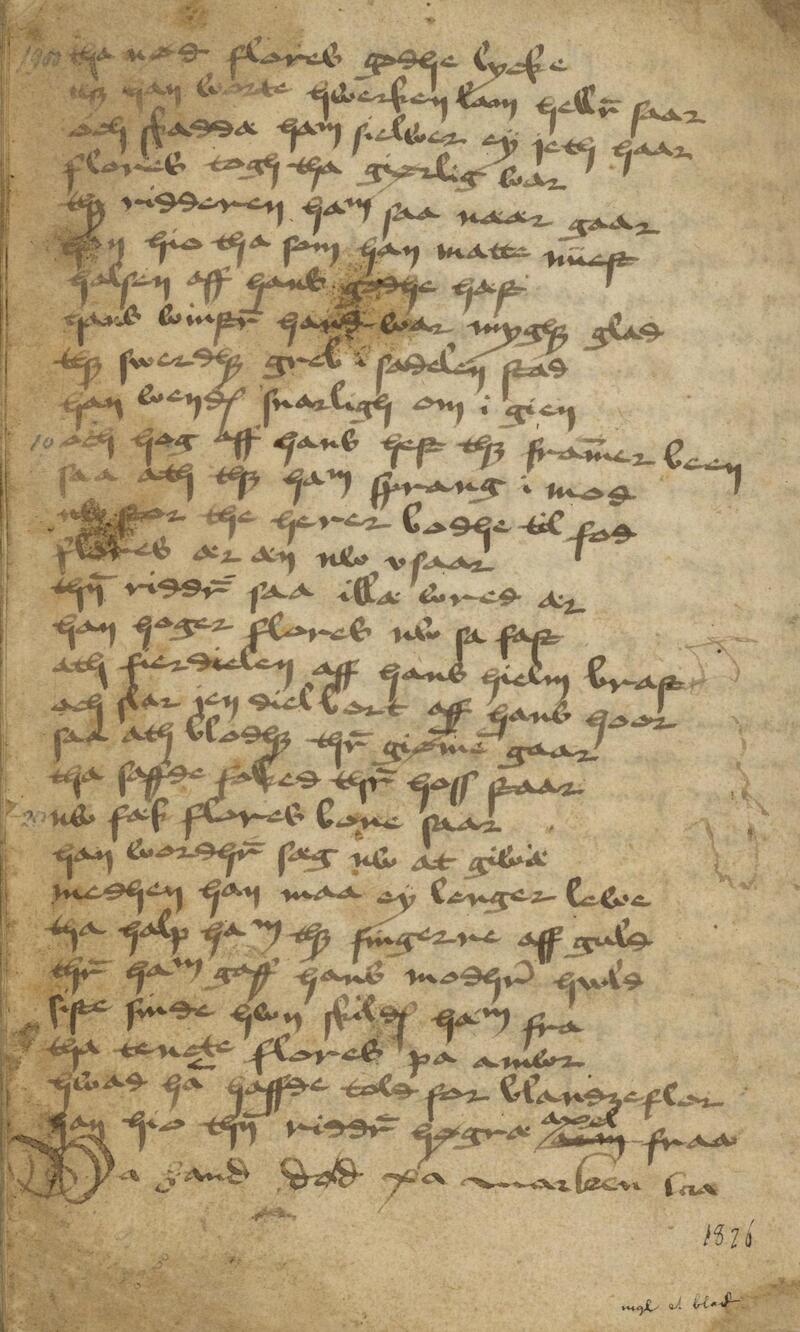 1800 tha nød flores godhe lycke
han worte hwerken lam hellr̄ saar
och skaddæ ham sielwer ey jeth haar
flores togh tha giørlig war
thꝫ ridderen ham saa naar gaar
han hio tha som han matte mest
halsen aff hans godhe hæst
hans winstr̄ hand war myghꝫ glad
thꝫ swerdhꝫ greb i sadelen stad
han wende snarligh om i gien
10 och hog aff hans hest thꝫ framer been
saa ath thꝫ ham sprang i mod
nw stor the herer bodhe til fod
flores ær æn nw vsaar
thn̄ riddr̄ saa illæ wred ær
han hoger flores nw sa fast
ath fierdielen aff hans hielm brast
och slar jen diel bort aff hans hoor
saa ath blodhꝫ thr̄ giømē gaar
tha saffde folked thr̄ hoss staar
20 nw fæk flores bone saar
han wordhr̄ sæg nw at giwæ
medhen han maa ey lenger lewe
tha halp ham thꝫ fingerne aff guld
thr̄ ham gaff hans modhr̄ hwld
siste sinde hwn skilde ham fra
tha tencte flores pa amor
hwad hā haffde told for blandzeflor
han hio thn̄ riddr̄ høgræ axel fraa
Da hand død pa marken laa
1826
mgl et blad